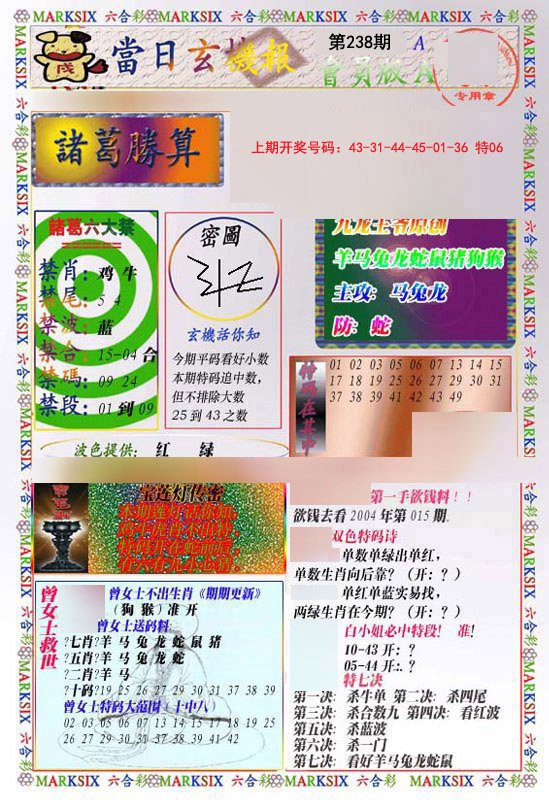 MARKSIX 六合彩 MARKSIX 六合彩 MARKSIX 六合彩 MARKSIX 六合彩
當日玄機報
第238期 A
會員版A
专用章
諸葛勝算
上期开奖号码：43-31-44-45-01-36 特06
諸葛六大禁
禁肖：鸡 牛
禁尾：5 4
禁波：蓝
禁合：15-04 合
禁碼：09 24
禁段：01 到 09
密圖
玄機話你知
今期平码看好小数
本期特码追中数，
但不排除大数
25 到 43 之数
羊马兔龙蛇鼠猪狗猴
主攻：马兔龙
防：蛇
特码在其中
01 02 03 05 06 07 13 14 15
17 18 19 25 26 27 29 30 31
37 38 39 41 42 43 49
波色提供： 红 绿
宝莲灯传密
第一手欲钱料！！
欲钱去看 2004 年第 015 期。
双色特码诗
单数单绿出单红，
单数生肖向后靠？（开：？）
单红单蓝实易找，
两绿生肖在今期？（开：？）
白小姐必中特段！ 准！
10-43 开：？
05-44 开：.？
特七决
第一决：杀牛单 第二决：杀四尾
第三决：杀合数九 第四决：看红波
第五决：杀蓝波
第六决：杀一门
第七决：看好羊马兔龙蛇鼠
曾女士救世
曾女士不出生肖《期期更新》
（狗 猴）准 开
曾女士送码料
?七肖?羊 马 兔 龙 蛇 鼠 猪
?五肖?羊 马 兔 龙 蛇
?二肖?羊 马
?十码?19 25 26 27 29 30 31 37 38 39
曾女士特码大范围（十中八）
02 03 05 06 07 13 14 15 17 18 19 25
26 27 29 30 31 37 38 39 41 42
MARKSIX 六合彩 MARKSIX 六合彩 MARKSIX 六合彩 MARKSIX 六合彩